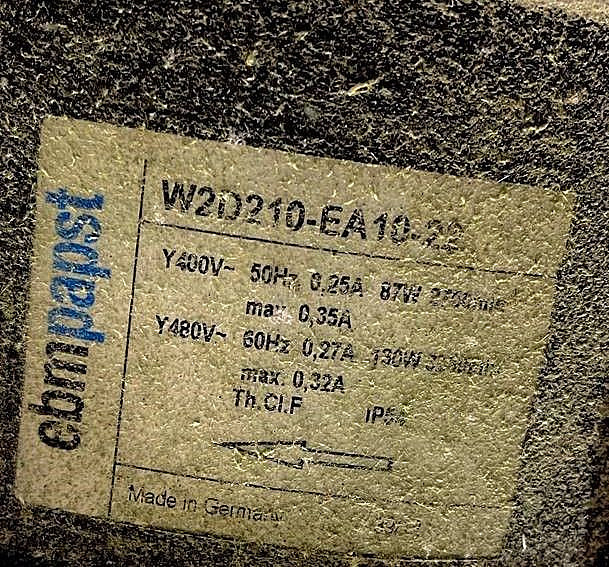 ebmpapst
W2D210-EA10-22
Y400V~ 50Hz 0,25A 87W
max. 0,35A
Y480V~ 60Hz 0,27A 130W
max. 0,32A
Th.Cl.F
Made in Germany